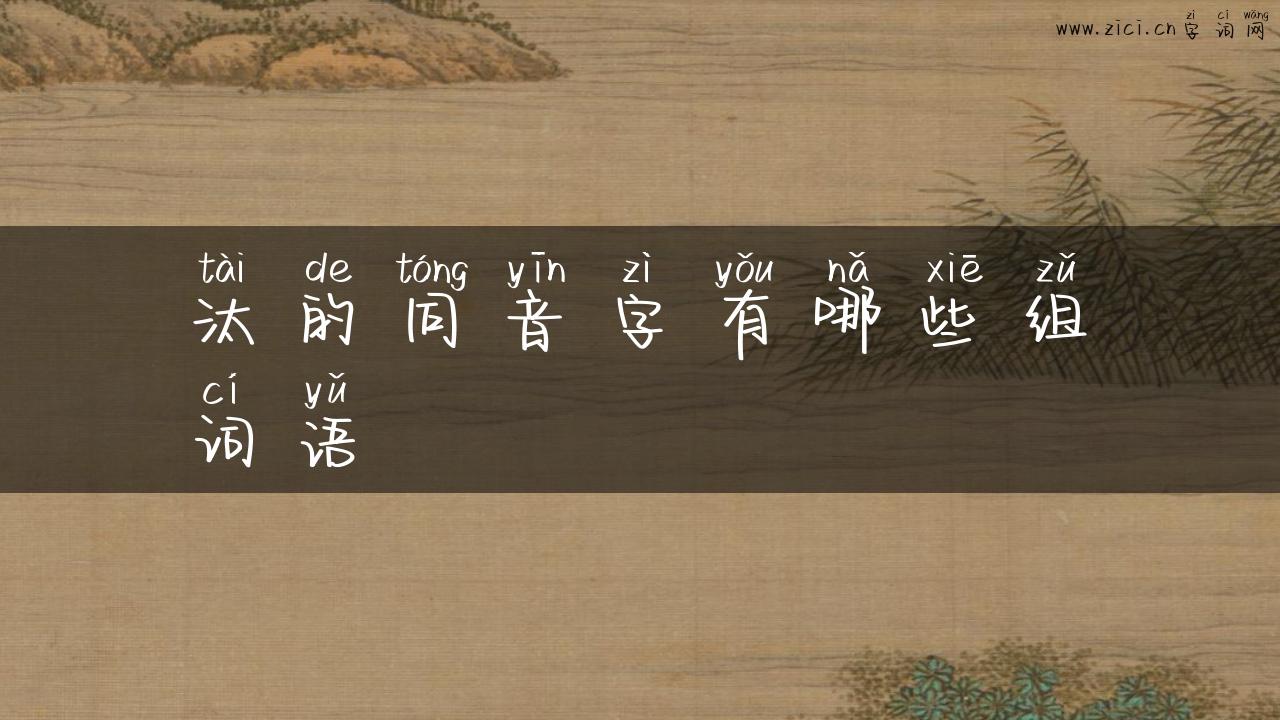 zì cí wǎng
www.zici.cn字词网
tài de tóng yīn zì yǒu nǎ xiē zǔ
汰的同音字有哪些组
cí yǔ
词语